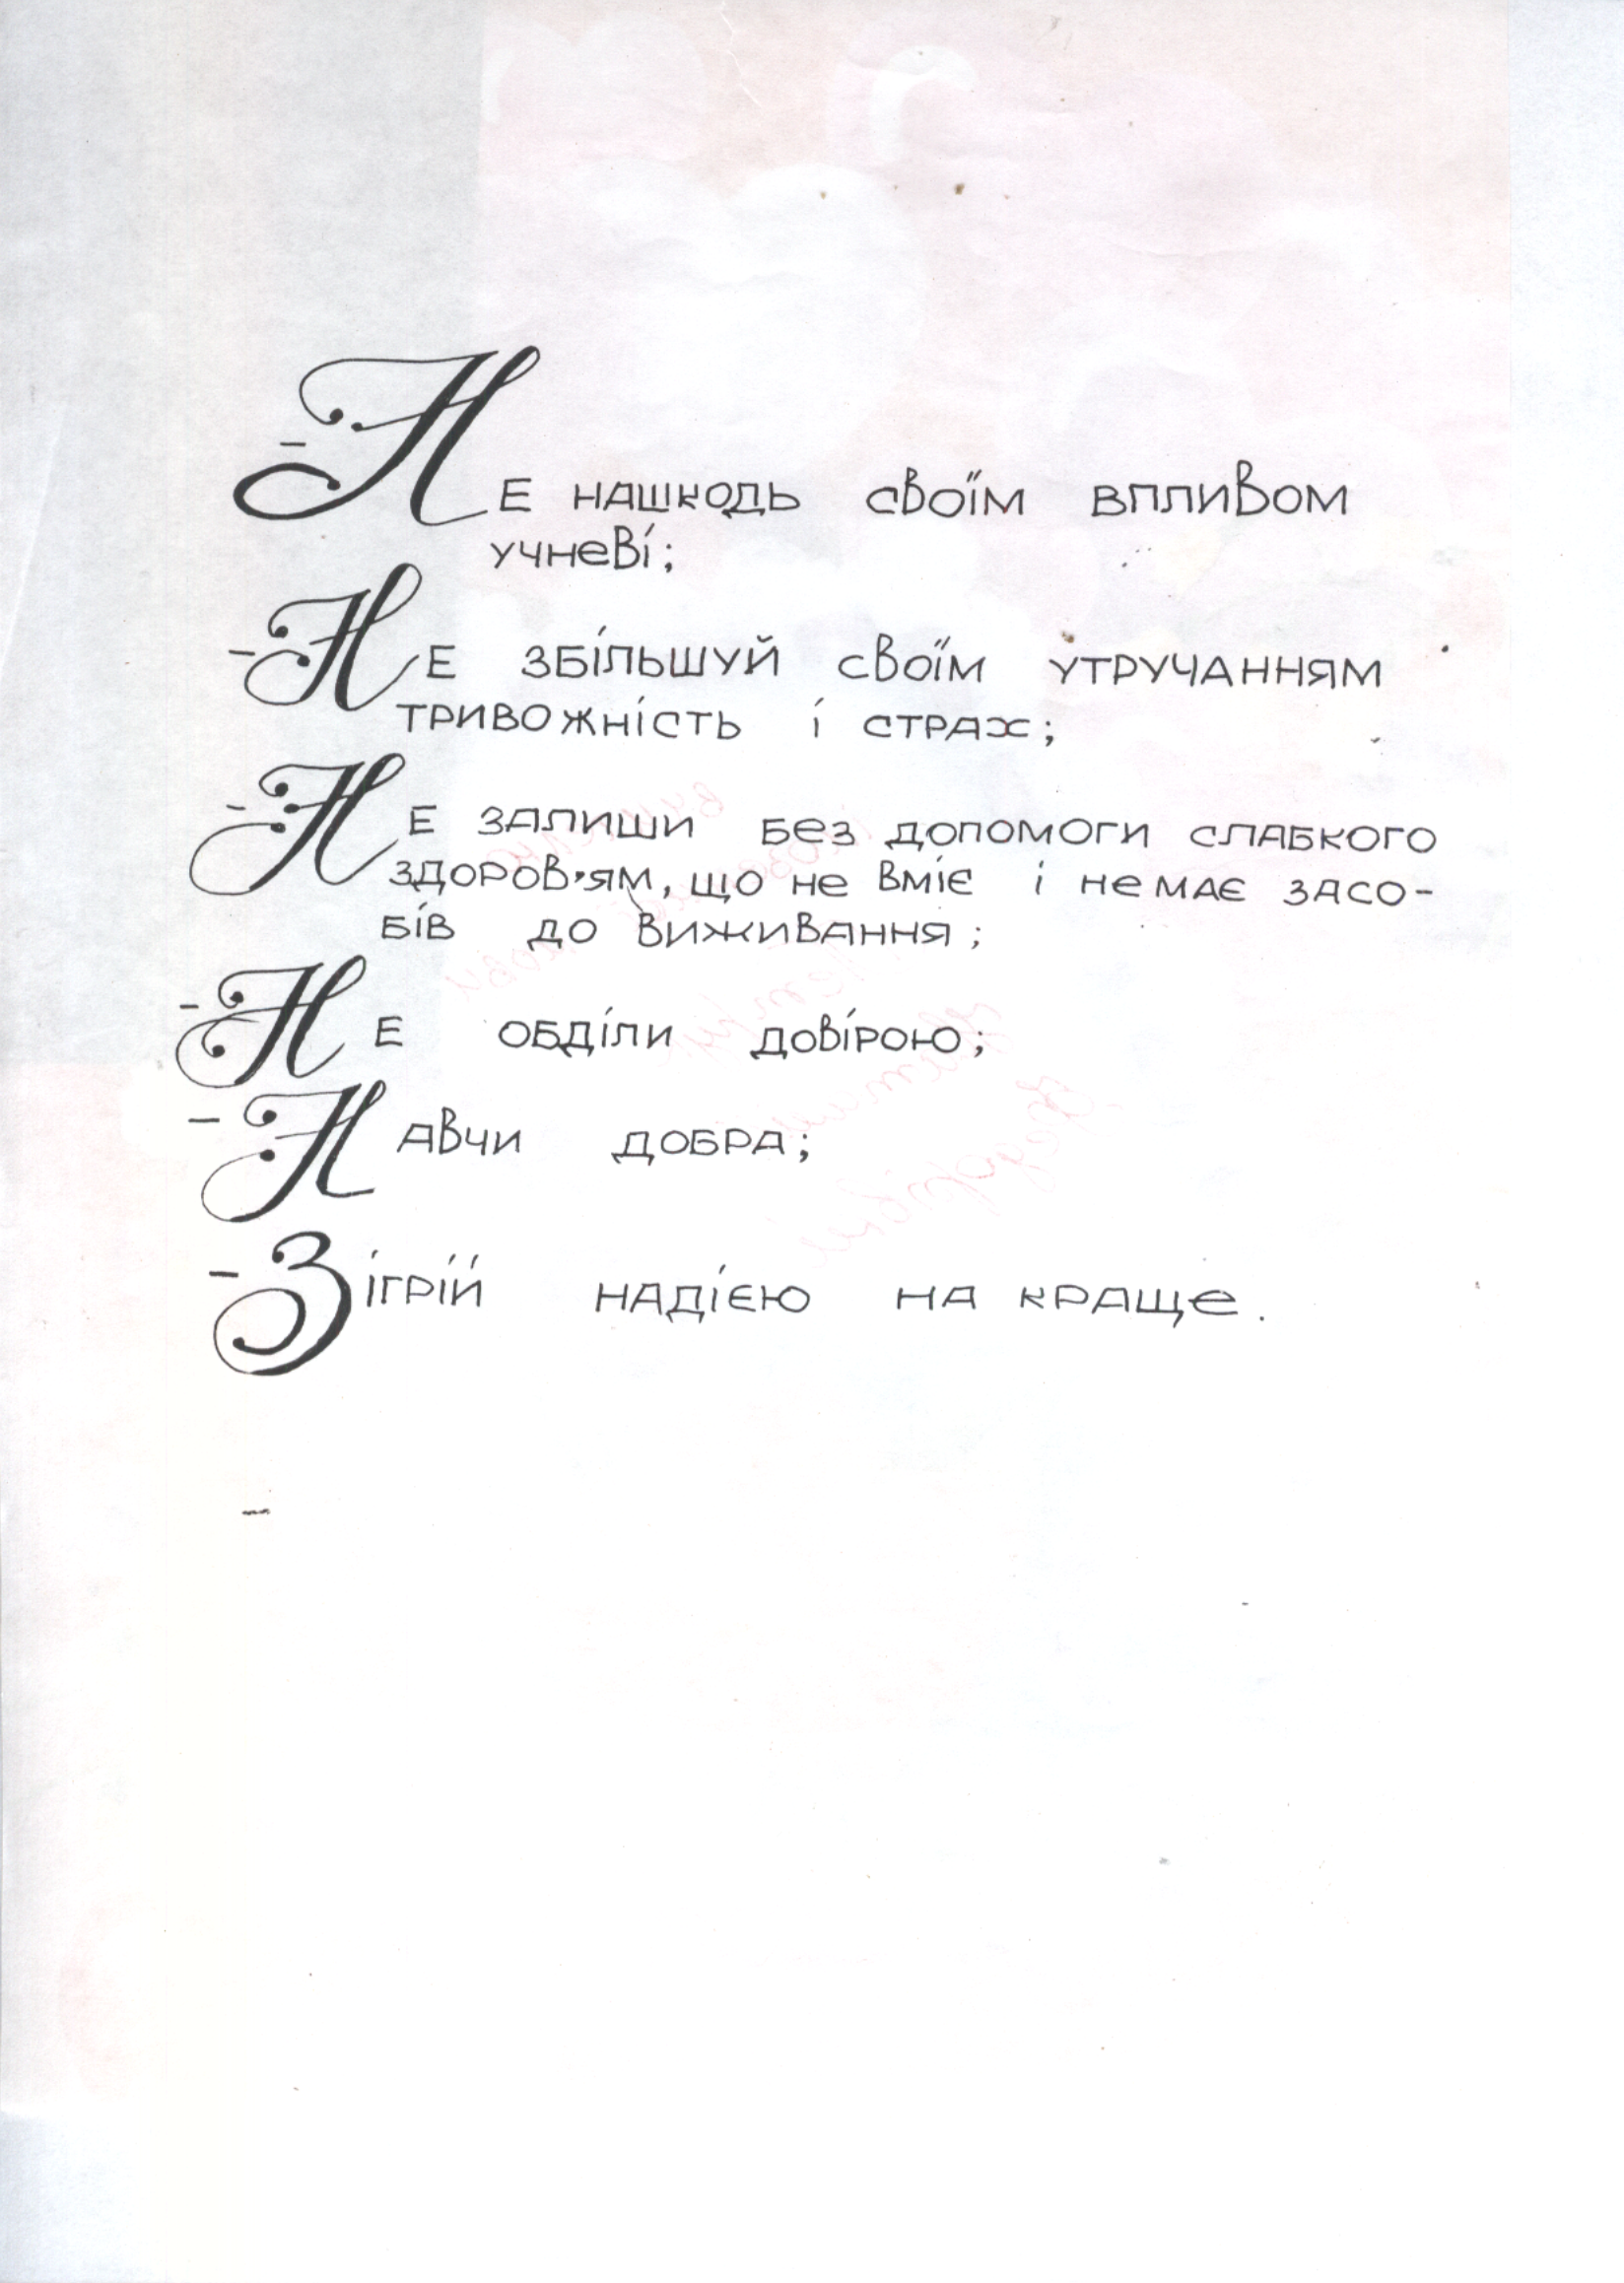 - Не нашкодь своїм впливом
учневі;
- Не збільшуй своїм утручанням
тривожність і страх;
- Не залиши без допомоги слабкого
здоров'ям, що не вміє і не має засо-
бів до виживання;
- Не обділи довірою;
- Навчи добра;
- Зігрій надією на краще.
-